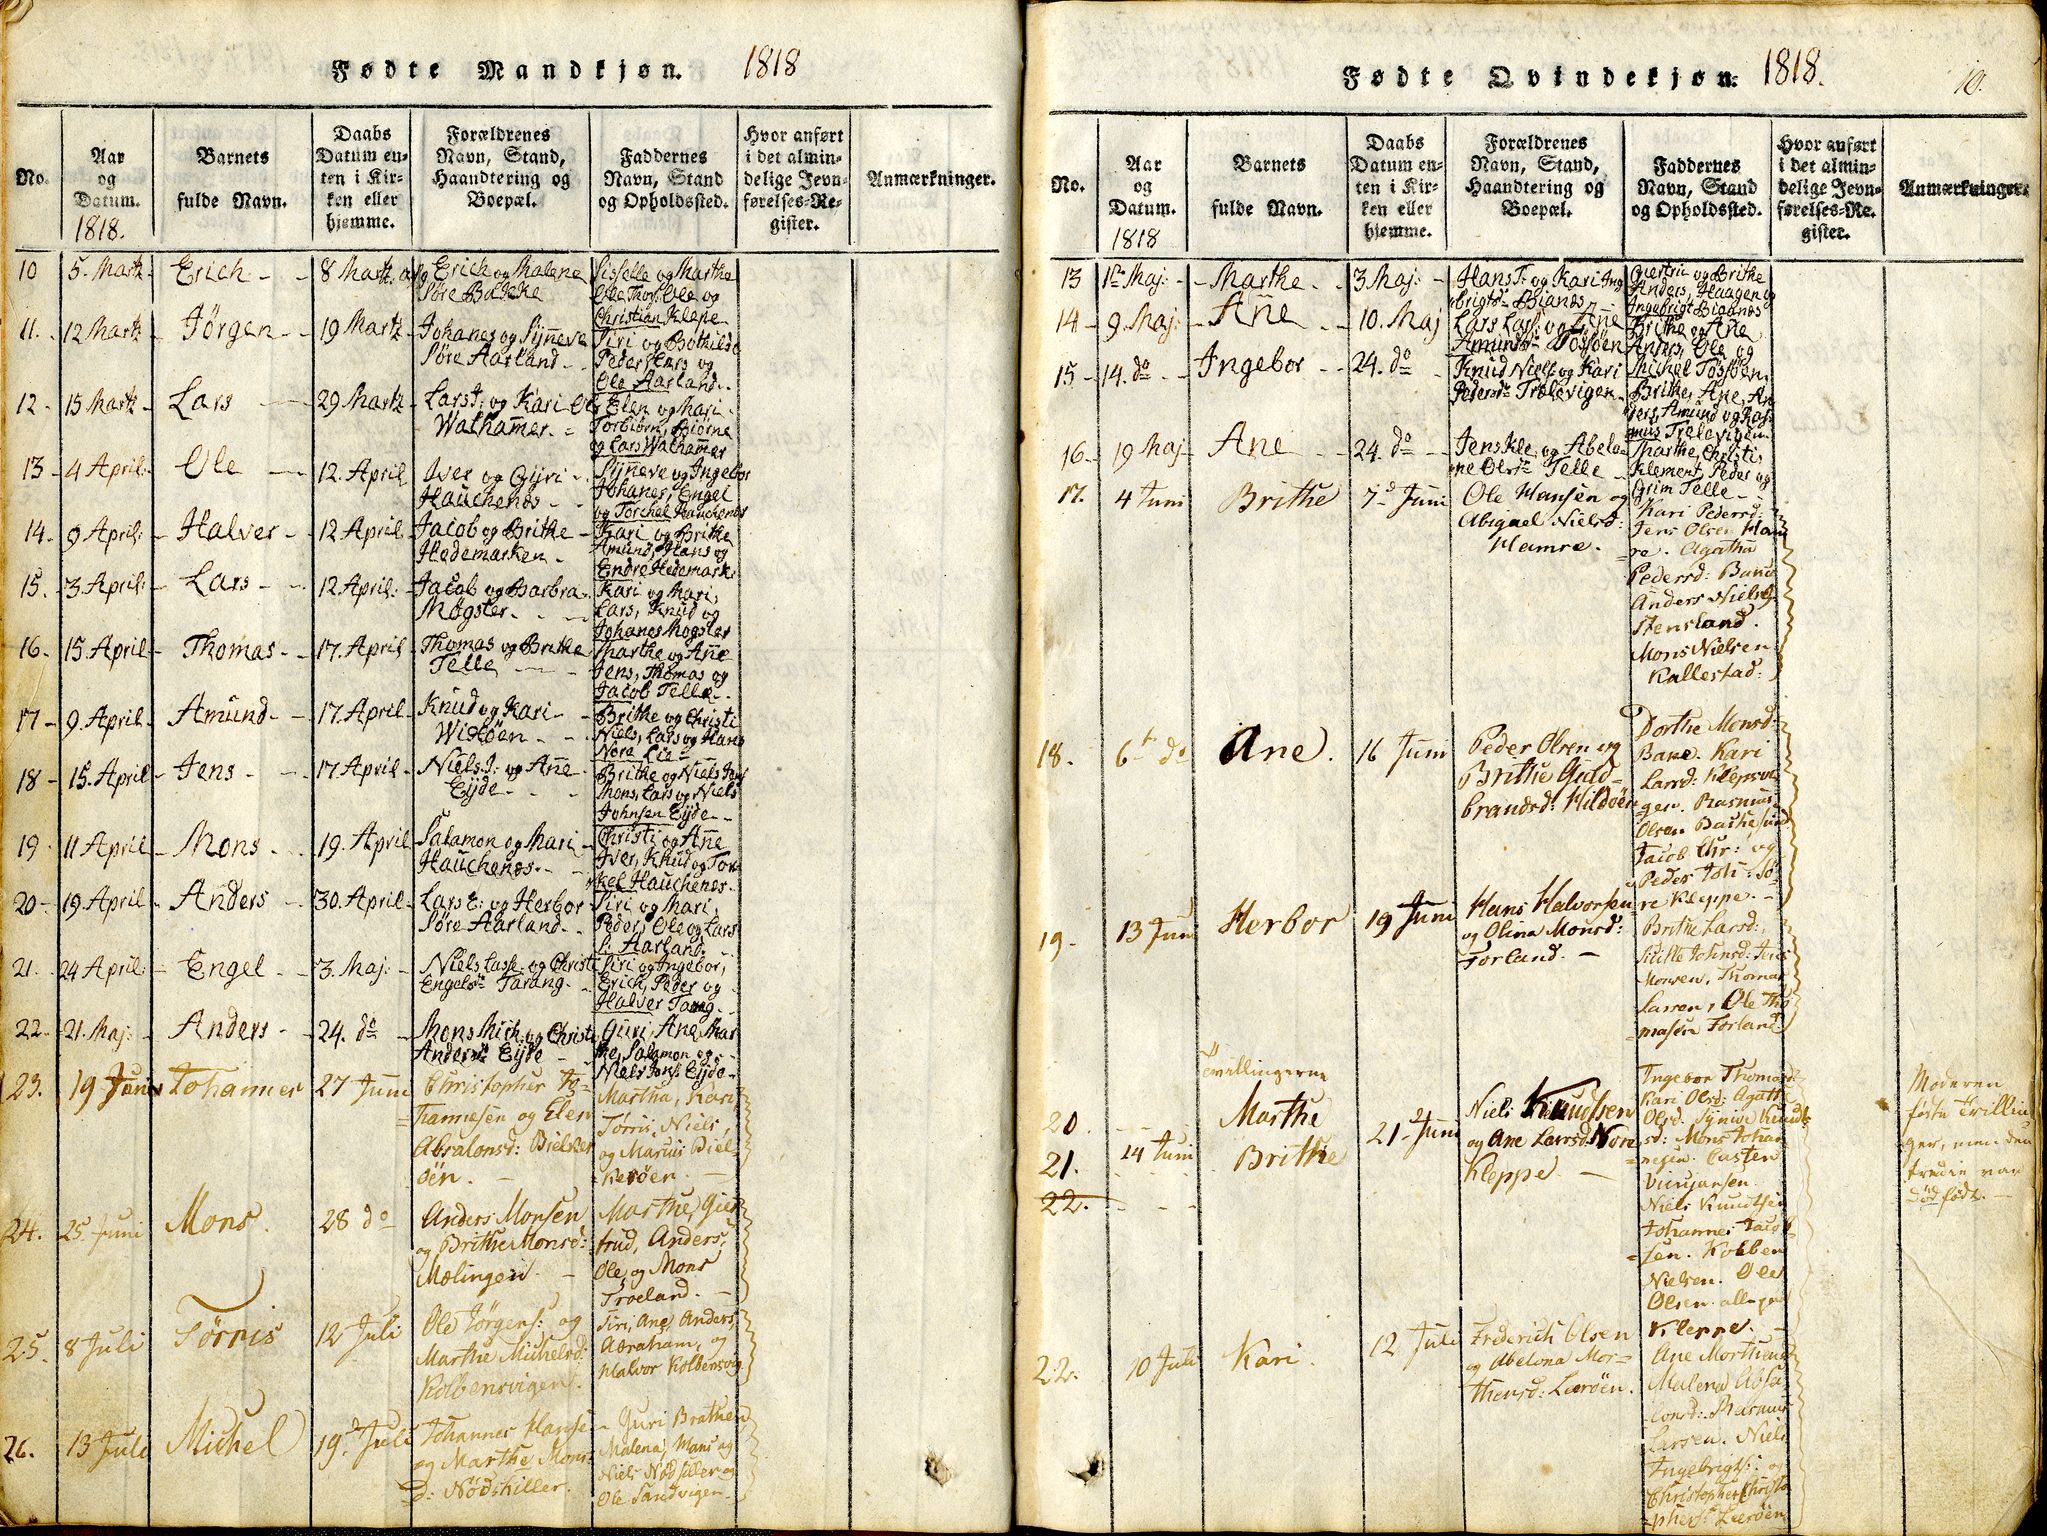 Fødte Mandkjøn. 1818
No.
Aar
og
Datum.
1818.
Barnets
fulde Navn.
Daabs
Datum en-
ten i Kir-
ken eller
hjemme.
Forældrenes
Navn, Stand,
Haandtering og
Boepæl.
Faddernes
Navn, Stand
og Opholdssted.
Hvor anført
i det almin-
delige Jevn-
førelses-Re-
gister.
Anmærkninger.
10 5. Martz Erich 8 Martz
Erich og Malene
Søre Bække
Sisselle og Marthe
Ole Thos: Ole og
Christian Klepe
11. 12 Martz Jørgen 19 Martz
Johanes og Sÿneve
Søre Aarland
Siri og Bothilde
Peder Lars og
Ole Aarland
12 15 Martz Lars 29 Martz
Lars J: og Kari
Walhamer.
Elen og Mari
Torbiørn, Biørne
og Lars Walhamer
13 4 April: Ole 12. April
Iver og Gÿri
Hauchenæs
Sÿneve og Ingebor
Johanes, Engel
og Torchel Hauchenæs
14. 9 April: Halver 12 April
Jacob og Brithe
Hedemarken
Kari og Brithe
Amund, Hans og
Endre Hedemark:
15. 3 April: Lars 12 April:
Jacob og Barbra
Møgster
Kari og Mari,
Lars, Knud og
Johanes Møgster
16 15 April Thomas 17. April
Thomas og Brithe
Telle
Marthe og Ane
Jens, Thomas og
Jacob Telle
17 9. April Amund 17. April
Knud og Kari
Wistöen
Brithe og Christi
Niels, Lars og Hans
Nøre Lie
18 15. April Jens 17 April
Niels J: og Ane
Eÿde
Brithe og Niels Jens
Mons, Lars og Niels
Johnsen Eÿde
19 11 April Mons 19. April
Salamon og Mari
Hauchenæs.
Christi og Ane
Iver, Knud og Tor
kel Hauchenæs.
20 19 April Anders 30. April
Lars E: og Herbor
Søre Aarland.
Siri og Mari,
Peder, Ole og Lars
S: Aarland.
21. 24 April: Engel 3. Maj:
Niels Lasse: og Christi
Engelsdr Tarang.
Siri og Ingebor,
Erich, Peder og
Halver Tarang
22 21. Maj: Anders 24. do
Mons Mich: og Christi
Andersdr Eÿde
Guri, Ane Mar
the, Salamon og
Niels Jons: Eÿde
23. 19 Juni Johannes 27 Juni
Christopher Jo-
hannesen og Elen
Absalonsd: Bielker
öen.
Martha, Kari,
Torris, Niels,
og Marius Biel-
keröen.
24. 25 Juni Mons. 28 do
Anders Monsen
og Brithe Monsd:
Mælingen.
Marthe, Gier
trud, Anders,
Ole og Mons
Troeland.
25. 8 Juli Törris 12 Juli
Ole Jørgens: og
Marthe Michelsd:
Kolbensvigen.
Siri, Ane, Anders,
Abraham, og
Halvor Kolbensvig
26. 13 Juli Michel 19. Juli
Johannes Hanse
og Marthe Mons-
d: Nødshiller.
Guri Brathen
Malena, Mons og
Niels Nödsiller og
Ole Sandvigen.
Fødte Qvindekjøn: 1818. 10.
No.
Aar
og
Datum.
1818
Barnets
fulde Navn.
Daabs
Datum en-
ten i Kir-
ken eller
hjemme.
Forældrenes
Navn, Stand,
Haandtering og
Boepæl.
Faddernes
Navn, Stand
og Opholdssted.
Hvor anført
i det almin-
delige Jevn-
førelses-Re-
gister.
Anmærkninger.
13 1ste Maj: Marthe 3 Maj:
Hans J: og Kari Ing
brigtsdr Bianæs
Giertru og Brithe
Anders, Haagen og
Ingebrigt Bianæs
14 9. Maj: Ane 10. Maj
Lars Lars: og Ane
Amundsdr Tossöen
Brithe og Ane
Anders, Ole og
Michel Tossöen.
15 14. do Ingebor 24. do
Knud Niels: og Kari
Pedersdr Trælevigen
Brithe, Ane, An
ders, Amund og Ras
mus Trælevigen
16 19 Maj Ane 24. do
Jens Kle: og Abelo
ne Olsdr Telle
Marthe, Christi,
Klement, Peder og
Grim Telle
17. 4 Juni Brithe 7 Juni
Ole Hansen og
Abigael Nielsd:
Hamre.
Kari Pedersd:
Jens Olsen Ham
re. Agatha
Pedersd: Bane
Anders Niels:
Stensland.
Mons Nielsen
Kallestad:
18. 6 do Ane. 16 Juni
Peder Olsen og
Brithe Guld-
brandsd: Hildöen
Dorthe Monsd
Bane. Kari
Larsd: Klepsvi
gen. Rasmus
Olsen Bakkesund
Jacob Chr: og
Peder Joh: Sö-
re Kleppe.
19. 13 Juni Herbor 19 Juni
Hans Halvorsen
og Olina Monsd:
Forland.
Brithe Larsd:,
Johnsd: Jens
Monsen, Thomas
Larsen, Ole Tho
masen Forland.
Tvillingerne
20. Marthe
21. 14 Juni Brithe 21 Juni
22.
Niels Knudsen
og Ane Larsd: Nore
Kleppe
Ingebor Thomasd:
Kari Olsd: Agathe
Olsd. Synive Knud
sd: Mons Johan
nesen. Casten
Niels Knudsen
Johannes Jacob
sen. Kolben
Nielsen. Ole
Olsen. alle paa
Kleppe.
Moderen
födte Trillin
ger, men den
tredie var
dödfödt.
22. 10 Juli Kari. 12 Juli
Frederich Olsen
og Abelona Mor-
thensd: Leröen.
Ane Morthens
Malena Absa-
lonsd: Rasmus
Larsen. Niels
Ingebrigts: og
Christopher Christo
phers: Leröen